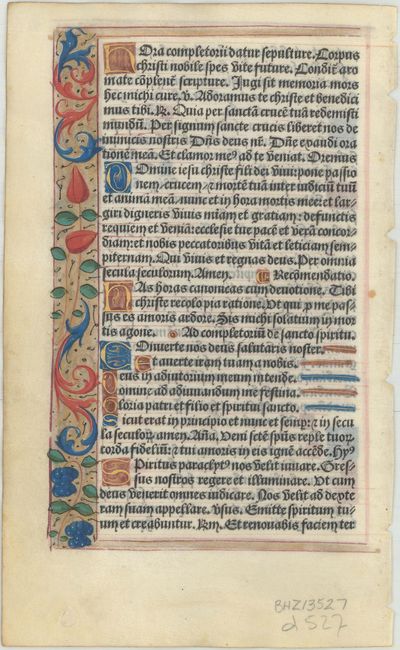 Hora completorii datur sepulture. Corpus
christi nobile spes vite future. Condit̄ aro
mate cōplent̄ scripture. Jugi sit memoria mors
hec michi cure. v. Adoramus te christe et benedici
mus tibi. R. Quia per sanctā crucē tuā redemisti
mundū. Per signum sancte crucis liberet nos de
inimicis nostris Dn̄s deus nr̄. Dn̄e exaudi ora
tionē meā. Et clamor meꝰ ad te veniat. Oremus
Domine iesu christe fili dei viui: pone passio
nem / crucem / & mortē tuā inter iudiciū tuū
et animā meā. nunc et in hora mortis mee: et lar
giri digneris viuis miam et gratiam: defunctis
requiem et veniā: ecclesie tue pacē et verā concor-
diam: et nobis peccatoribus vitā et leticiam sem-
piternam. Qui viuis et regnas deus. Per omnia
secula seculorum. Amen. Recōmendatio.
Has horas canonicas cum deuotione. Tibi
christe recolo pia ratione. Ut qui pro me pas-
sus es amoris ardore. Sis michi solatium in mor
tis agone. Ad completoriū de sancto spiritu.
Conuerte nos deus salutaris noster.
Et auerte iram tuam a nobis.
Deus in adiutorium meum intende.
Domine ad adiuuandum me festina.
Gloria patri et filio et spiritui sancto.
Sicut erat in principio et nunc et semp: & in secu
la seculoꝝ amen. Aña. Veni sctē spūs reple tuoꝝ
corda fidelium: & tui amoris in eis ignē accēde. Hyꝰ
Spiritus paraclytꝰ nos velit iuuare. Gres-
sus nostros regere et illuminare. Ut cum
deus venerit omnes iudicare. Nos velit ad dexte
ram suam appellare. Vsus. Emitte spiritum tu-
um et creabuntur. Rm. Et renouabis faciem ter
BHZ13527
d527